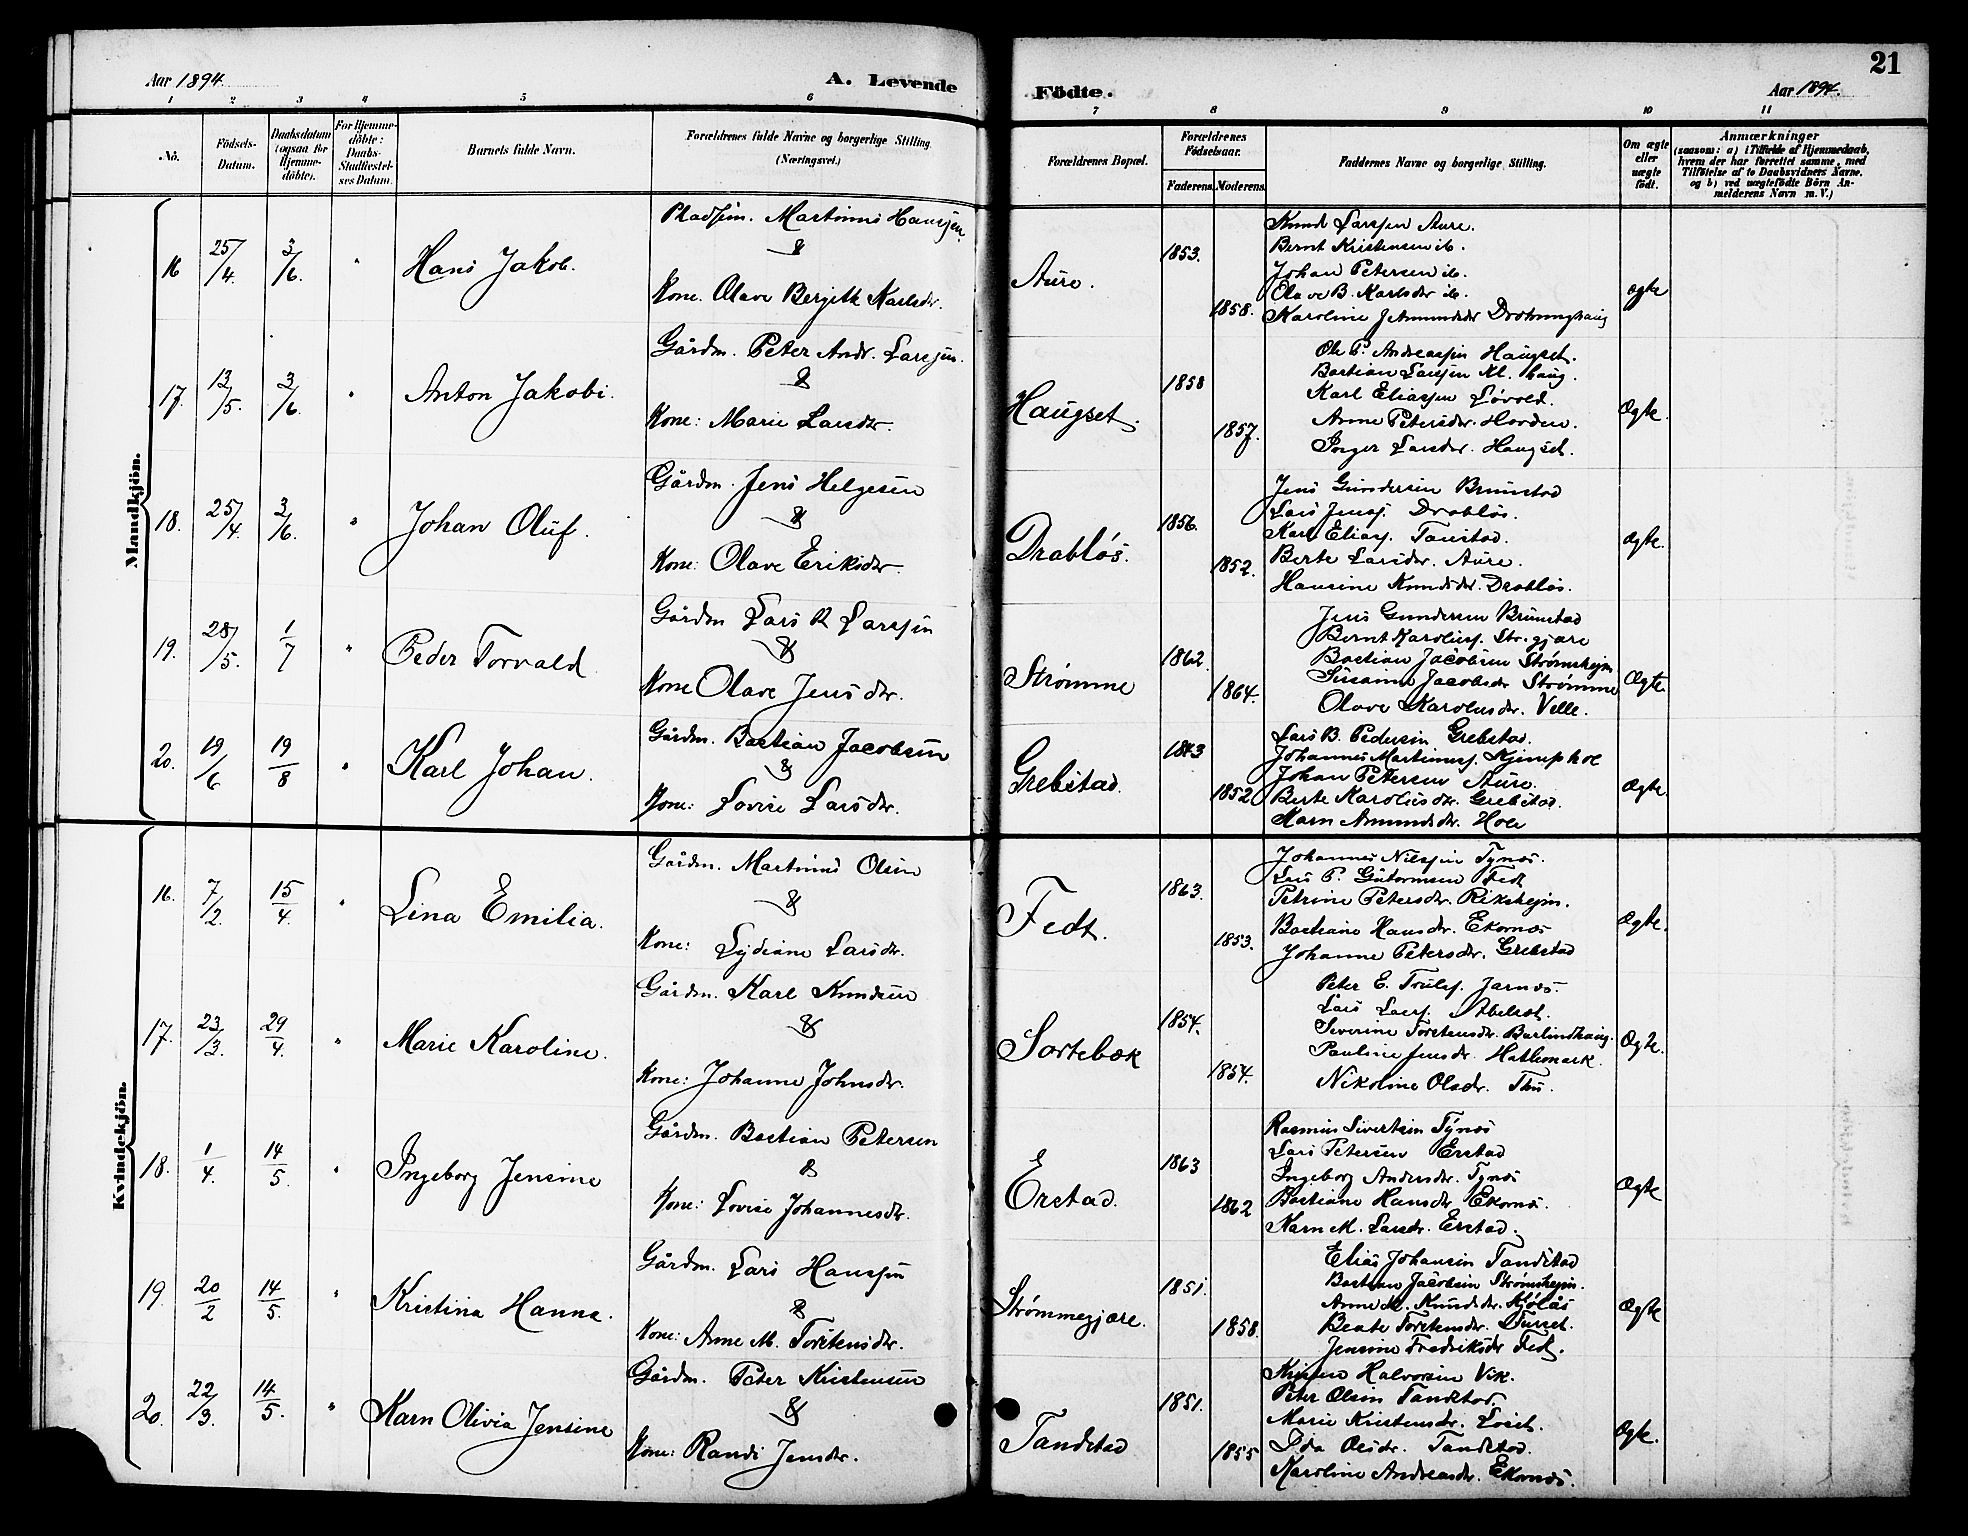 Aar 1894.
A. Levende
Födte.
Aar 1894.
21
1 2 3 4 5 6 7 8 9 10 11
No.
Födsels-Datum.
Daabsdatum (ogsaa for Hjemmedöbte).
For Hjemmedöbte: Daabs-Stadfæstelses Datum.
Barnets fulde Navn.
Forældrenes fulde Navne og borgerlige Stilling. (Næringsvei.)
Forældrenes Bopæl.
Forældrenes Födselsaar.
Faderens. Moderens.
Faddernes Navne og borgerlige Stilling.
Om ægte eller uægte födt.
Anmærkninger
(saasom: a) i Tilfælde af Hjemmedaab, hvem der har forrettet samme, med Tilföielse af to Daabsvidners Navne, og b) ved uægtefödte Börn Anmelderens Navn m. V.)
Mandkjön.
16 25/4. 3/6. " Hans Jakob.
Pladsm. Martinus Hanssen
&
Kone. Olave Bergith Karlsdr.
Aure. 1853. 1858.
Knud Larssen Aure.
Bernt Kristensen ib.
Johan Petersen ib.
Olave B. Karlsdr ib.
Karoline J Amundsdr
ægte
17. 13/5. 3/6. " Anton Jakobi.
Gårdm. Peter Andr. Larssen.
&
Kone: Marie Larsdr.
Haugset. 1858 1857.
Ole P. Andreassen Haugset.
Bastian Larssen Kl. haug.
Karl Eliassen Løvold.
Anne Petersdr.
Inger Larsdr. Haugset.
Ægte.
18. 25/4. 3/6. " Johan Oluf.
Gårdm. Jens Helgesen
&
Kone: Olave Eriksdr.
Drabløs. 1856. 1852.
Jens Gundersen Brunstad
Lars Jenss. Drabløs.
Karl Elias. Tanstad.
Berte Larsdr. Aure.
Hansine Knudsdr. Drabløs.
Ægte.
19. 28/5. 1/7 " Peder Torvald.
Gårdm Lars R Larssen
&
Kone Olave Jensdr.
Strømme 1862. 1864.
Jens Gundersen Brunstad
Bernt Karoluss. Str. gjære
Bastian Jacobsen Strømshejm
Susanne Jacobsdr Strømme
Olave Karolusdr. Velle.
Ægte.
20. 19/6 19/8 " Karl Johan.
Gårdm. Bastian Jacobsen
&
Kone: Lovise Larsdr.
Grebstad. 1843 1852
Lars B. Pedersen Grebstad.
Johannes Martinuss.
Johan Petersen Aure.
Berte Karolusdr. Grebstad.
Karn Amundsdr. Hole
Ægte.
Kvindekjön.
16. 7/2. 15/4. " Lina Emilia.
Gårdm. Martinus Olsen
&
Kone: Lydiane Larsdr.
Fedt. 1863. 1853.
Johannes Nilssen Tynes.
Lars P. Guttormsen Fedt
Petrine Petersdr. Riksheim.
Bastiane Hansdr. Ekornes
Johanne Petersdr. Grebstad
Ægte.
17. 23/3. 29/4. " Marie Karoline.
Gårdm. Karl Knudsen
&
Kone: Johanne Johnsdr.
Sortebæk 1854. 1854.
Peter E. Trulss. Jarnes.
Lars Larss. Abelset.
Severine Torstensdr. Barlindhaug.
Pauline Jensdr. Hatlemark.
Nikoline Olsdr. Thu.
Ægte.
18. 1/4. 14/5. " Ingeborg Jensine
Gårdm. Bastian Petersen
&
Kone: Lovise Johannesdr.
Erstad. 1863 1862
Rasmus Sivertsen Tynes
Lars Petersen Erstad
Ingeborg Andersdr. Tynes
Bastiane Hansdr. Ekornes.
Karn M. Larsdr. Erstad.
Ægte
19. 20/2 14/5. " Kristina Hanna.
Gårdm. Lars Hanssen
&
Kone: Anne M. Torstensdr.
Strømmegjære. 1851. 1858.
Elias Johansen Tandstad
Bastian Jacobsen Strømshejm.
Anne M. Knudsdr. Kjølås
Beate Torstensdr. Tusset.
Jensine Fredriksdr Fedt.
Ægte
20. 22/3. 14/5. " Karn Olivia Jensine
Gårdm. Peter Kristensen
&
Kone: Randi Jensdr.
Tandstad 1851. 1855
Halvorsen Vik.
Peter Olsen Tandstad.
Marie Kristensdr. Loset.
Ida Olsdr. Tandstad.
Karoline Andreasdr. Ekornes.
Ægte.